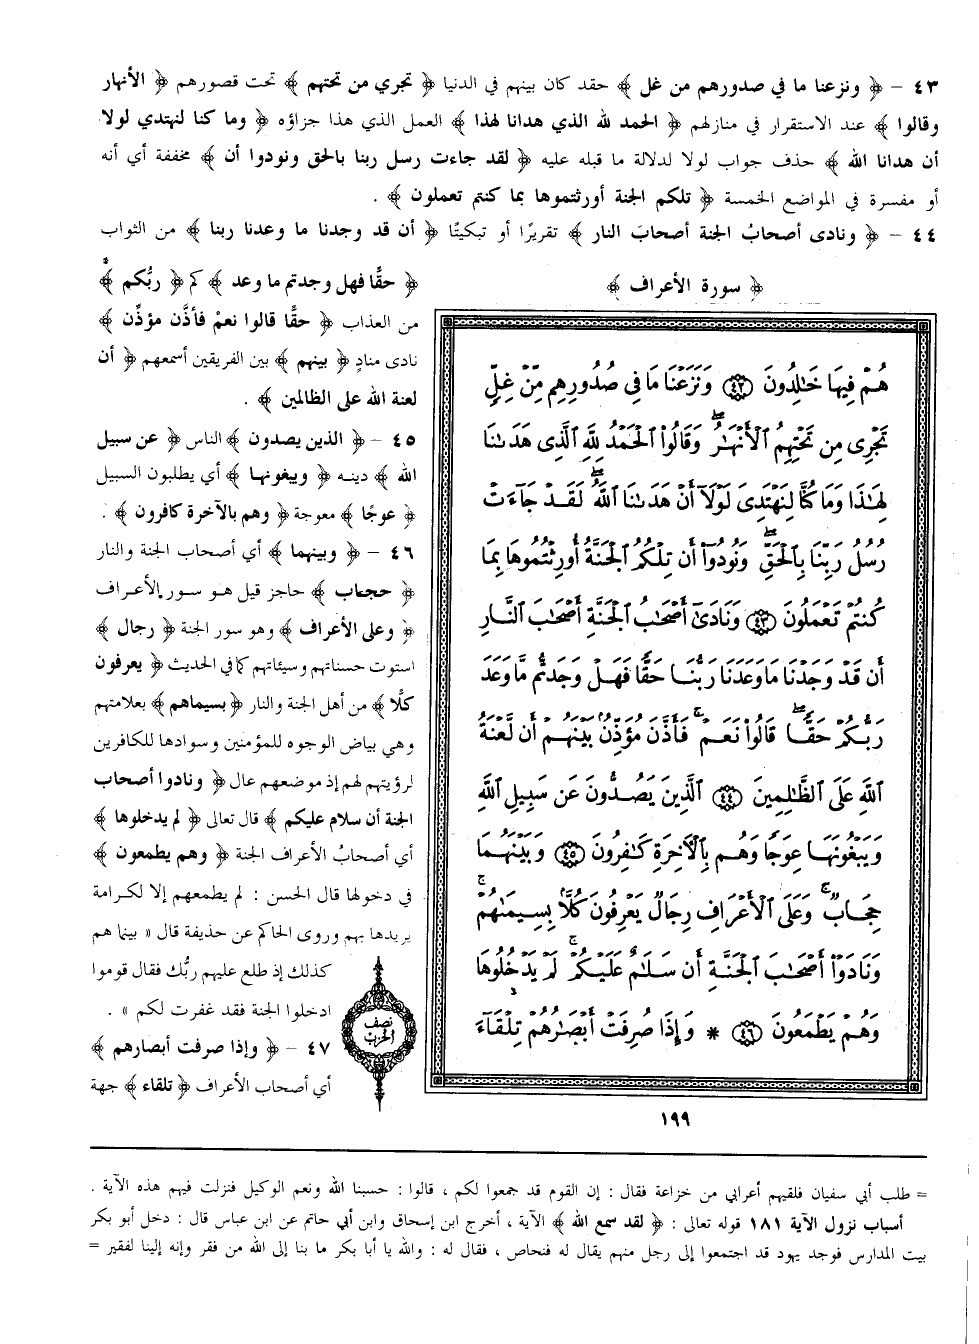 ٤٣ – ﴿ ونزعنا ما في صدورهم من غل ﴾ حقد كان بينهم في الدنيا ﴿ تجري من تحتهم ﴾ تحت قصورهم ﴿ الأنهار
وقالوا ﴾ عند الاستقرار في منازلهم ﴿ الحمد لله الذي هدانا لهذا ﴾ العمل الذي هذا جزاؤه ﴿ وما كنا لنهتدي لولا
أن هدانا الله ﴾ حذف جواب لولا لدلالة ما قبله عليه ﴿ لقد جاءت رسل ربنا بالحق ونودوا أن ﴾ مخففة أي أنه
أو مفسرة في المواضع الخمسة ﴿ تلكم الجنة أورثتموها بما كنتم تعملون ﴾ .
٤٤ – ﴿ ونادى أصحابُ الجنة أصحابَ النار ﴾ تقريرًا أو تبكيتًا ﴿ أن قد وجدنا ما وعدنا ربنا ﴾ من الثواب
﴿ حقًّا فهل وجدتم ما وعد ﴾ كم ﴿ ربُّكم ﴾
من العذاب ﴿ حقًّا قالوا نعمْ فأذَّن مؤذِّن ﴾
نادى منادٍ ﴿ بينهم ﴾ بين الفريقين أسمعهم ﴿ أن
لعنة الله على الظالمين ﴾ .
٤٥ – ﴿ الذين يصدون ﴾ الناس ﴿ عن سبيل
الله ﴾ دينه ﴿ ويبغونها ﴾ أي يطلبون السبيل
﴿ عوجًا ﴾ معوجة ﴿ وهم بالآخرة كافرون ﴾ .
٤٦ – ﴿ وبينهما ﴾ أي أصحاب الجنة والنار
﴿ حجاب ﴾ حاجز قيل هو سور الأعراف
﴿ وعلى الأعراف ﴾ وهو سور الجنة ﴿ رجال ﴾
استوت حسناتهم وسيئاتهم كما في الحديث ﴿ يعرفون
كلًّا ﴾ من أهل الجنة والنار ﴿ بسيماهم ﴾ بعلامتهم
وهي بياض الوجوه للمؤمنين وسوادها للكافرين
لرؤيتهم لهم إذ موضعهم عال ﴿ ونادوا أصحاب
الجنة أن سلام عليكم ﴾ قال تعالى ﴿ لم يدخلوها ﴾
أي أصحابُ الأعراف الجنة ﴿ وهم يطمعون ﴾
في دخولها قال الحسن : لم يطمعهم إلا لكرامة
يريدها بهم وروى الحاكم عن حذيفة قال « بينما هم
كذلك إذ طلع عليهم ربُّك فقال قوموا
ادخلوا الجنة فقد غفرت لكم » .
٤٧ – ﴿ وإذا صرفت أبصارهم ﴾
أي أصحاب الأعراف ﴿ تلقاء ﴾ جهة
نصف
الحزب
﴿ سورة الأعراف ﴾
هُمْ فِيهَا خَـٰلِدُونَ ٤٢ وَنَزَعْنَا مَا فِى صُدُورِهِم مِّنْ غِلٍّ
تَجْرِى مِن تَحْتِهِمُ ٱلْأَنْهَـٰرُ ۖ وَقَالُوا۟ ٱلْحَمْدُ لِلَّهِ ٱلَّذِى هَدَىٰنَا
لِهَـٰذَا وَمَا كُنَّا لِنَهْتَدِىَ لَوْلَآ أَنْ هَدَىٰنَا ٱللَّهُ ۖ لَقَدْ جَآءَتْ
رُسُلُ رَبِّنَا بِٱلْحَقِّ ۖ وَنُودُوٓا۟ أَن تِلْكُمُ ٱلْجَنَّةُ أُورِثْتُمُوهَا بِمَا
كُنتُمْ تَعْمَلُونَ ٤٣ وَنَادَىٰٓ أَصْحَـٰبُ ٱلْجَنَّةِ أَصْحَـٰبَ ٱلنَّارِ
أَن قَدْ وَجَدْنَا مَا وَعَدَنَا رَبُّنَا حَقًّا فَهَلْ وَجَدتُّم مَّا وَعَدَ
رَبُّكُمْ حَقًّا ۖ قَالُوا۟ نَعَمْ ۚ فَأَذَّنَ مُؤَذِّنٌۢ بَيْنَهُمْ أَن لَّعْنَةُ
ٱللَّهِ عَلَى ٱلظَّـٰلِمِينَ ٤٤ ٱلَّذِينَ يَصُدُّونَ عَن سَبِيلِ ٱللَّهِ
وَيَبْغُونَهَا عِوَجًا وَهُم بِٱلْـَٔاخِرَةِ كَـٰفِرُونَ ٤٥ وَبَيْنَهُمَا
حِجَابٌ ۚ وَعَلَى ٱلْأَعْرَافِ رِجَالٌ يَعْرِفُونَ كُلًّۢا بِسِيمَىٰهُمْ ۚ
وَنَادَوْا۟ أَصْحَـٰبَ ٱلْجَنَّةِ أَن سَلَـٰمٌ عَلَيْكُمْ ۚ لَمْ يَدْخُلُوهَا
وَهُمْ يَطْمَعُونَ ٤٦ * وَإِذَا صُرِفَتْ أَبْصَـٰرُهُمْ تِلْقَآءَ
١٩٩
= طلب أبي سفيان فلقيهم أعرابي من خزاعة فقال : إن القوم قد جمعوا لكم ، قالوا : حسبنا الله ونعم الوكيل فنزلت فيهم هذه الآية .
أسباب نزول الآية ١٨١ قوله تعالى : ﴿ لقد سمع الله ﴾ الآية ، أخرج ابن إسحاق وابن أبي حاتم عن ابن عباس قال : دخل أبو بكر
بيت المدارس فوجد يهود قد اجتمعوا إلى رجل منهم يقال له فنحاص ، فقال له : والله يا أبا بكر ما بنا إلى الله من فقر وإنه إلينا لفقير =